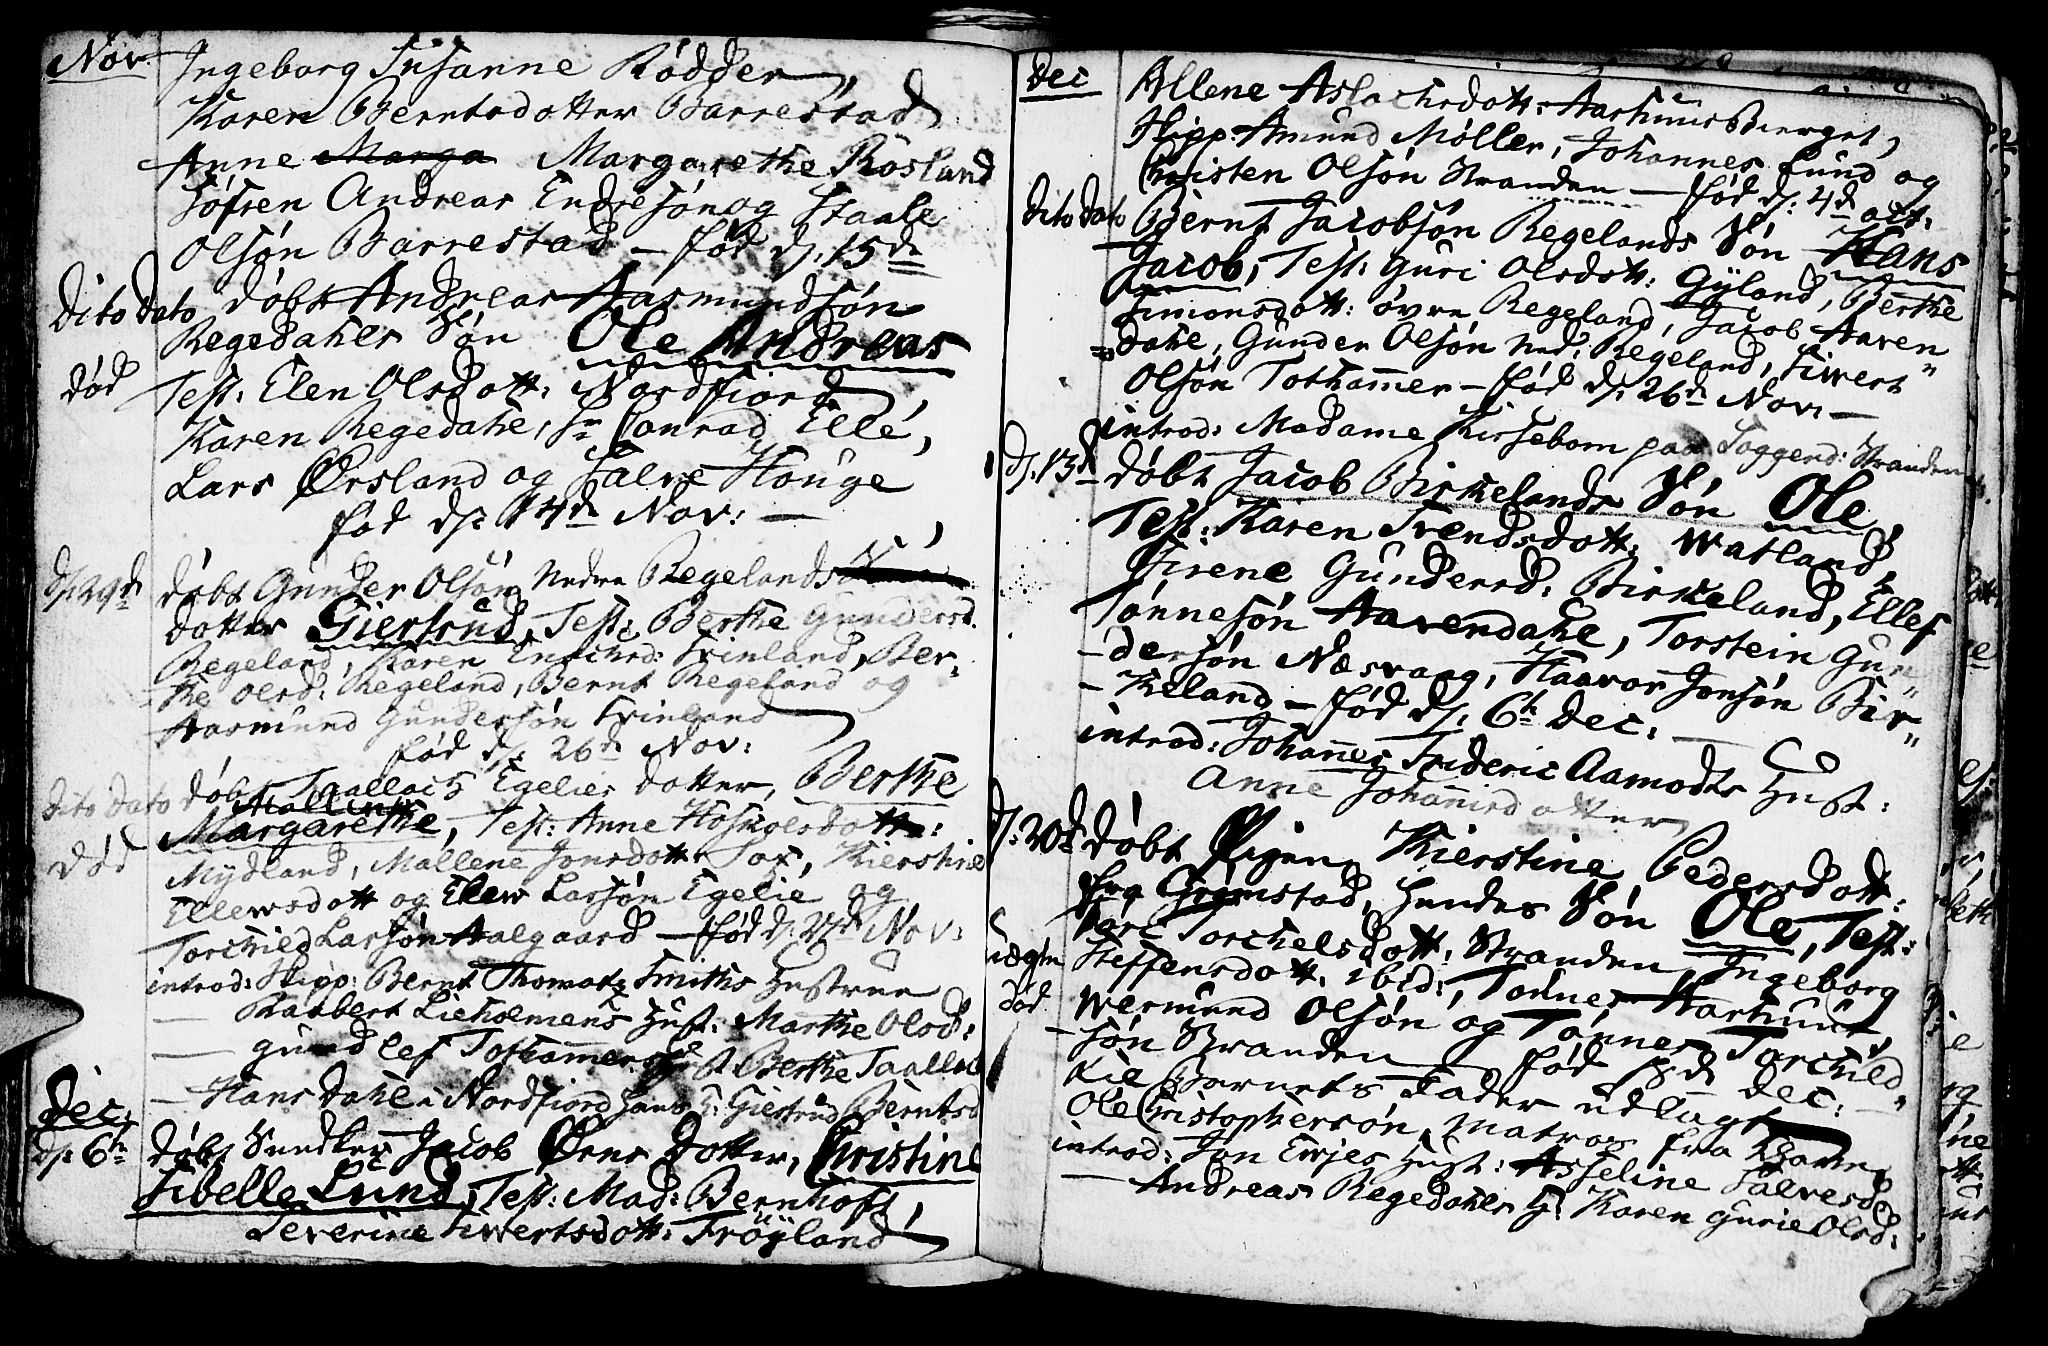 Nov. Ingeborg Susanne Rödder,
Karen Berntsdotter Barrestad
Anne Marga Margarethe Rosland
Söfren Andreas Endresön og Staale
Olsön Barrestad — föd d: 15de
Dito Dato döbt Andreas Aasmundsön
Regedahls Sön Ole Andreas
död Test: Elen Olsdott: Nordfiord,
Karen Regedahl, Sr Conrad Elle,
Lars Ørsland og Salve Houge
föd d: 14de Nov: —
d: 29de döbt Gunder Olsön Nedre Regelands
dotter Giertrud, Test: Berthe Gundersd.
Regeland, Karen Enochsd: Svinland, Ber-
-the Olsd: Regeland, Bernt Regeland og
Aasmund Gundersön Svinland
föd d: 26de Nov:
Dito Dato döbt Taallach Egelies dotter, Berthe
Mallene
Margarethe, Test: Anne Hoskolsdott:
död Mydland, Mallene Jonsdott: Sox, Kierstine
Ellewsdott og Elew Larsön Egelie og
Torchild Larsön Aalgaard — föd d: 27de Nov:
introd: Skipp: Bernt Thomas Smiths Hustrue
— Raabert Lieholmens Hust: Marthe Olsd:
— Gundlef Tothammers Hust Berthe Taallac
— Hans Dahl i Nordfiord hans H: Giertrud Berntsd
Dec:
d: 6te döbt Snedker Jacob Ørns Dotter, Christine
Sibelle Lund, Test: Mad: Bernhoft,
Severine Siwertsdott: Fröyland
Dec Allene Aslachsdott: Aarhuus Bierget,
Skipp: Amund Möller, Johannes Lund og
Christen Olsön Stranden — föd d: 4de oct.
Dito Dato Bernt Jacobsön Regelands Sön Hans
Jacob, Test: Guri Olsdott: Gyland, Berthe
Simonsdott: övre Regeland, Jacob Aaren
=dahl, Gunder Olsön Ned: Regeland, Siwert
Olsön Tothammer — föd d: 26de Nov: —
introd: Madame Kirsebom paa Soggend: Stranden
d: 13de döbt Jacob Birkelands Sön Ole,
Test: Karen Svendsdott: Watland,
Sirene Gundersd: Birkeland, Ellef
Tönnesön Aavendahl, Torstein Gun
-dersön Næsvaag, Haavor Jonsön Bir-
-keland — föd d: 6te Dec:
introd: Johannes Frideric Aamodts Hust:
Anne Johannisdotter
d: 20de döbt Pigen Kierstine Pedersdott:
fra Grimstad, hendes Sön Ole, Test:
uægte Torchelsdott: Stranden, Ingeborg
död Steffensdott: ibid:, Tönnes Aarhuus,
Wermund Olsön og Tönnes Torchild-
sön Stranden — föd 18de Dec: —
til Barnets Fader udlagt
Ole Christophersön, Matros fra
introd: Jon Eies Hust: Asseline Salvesd
— Andreas Regedahls H: Karen Gurie Olsd: